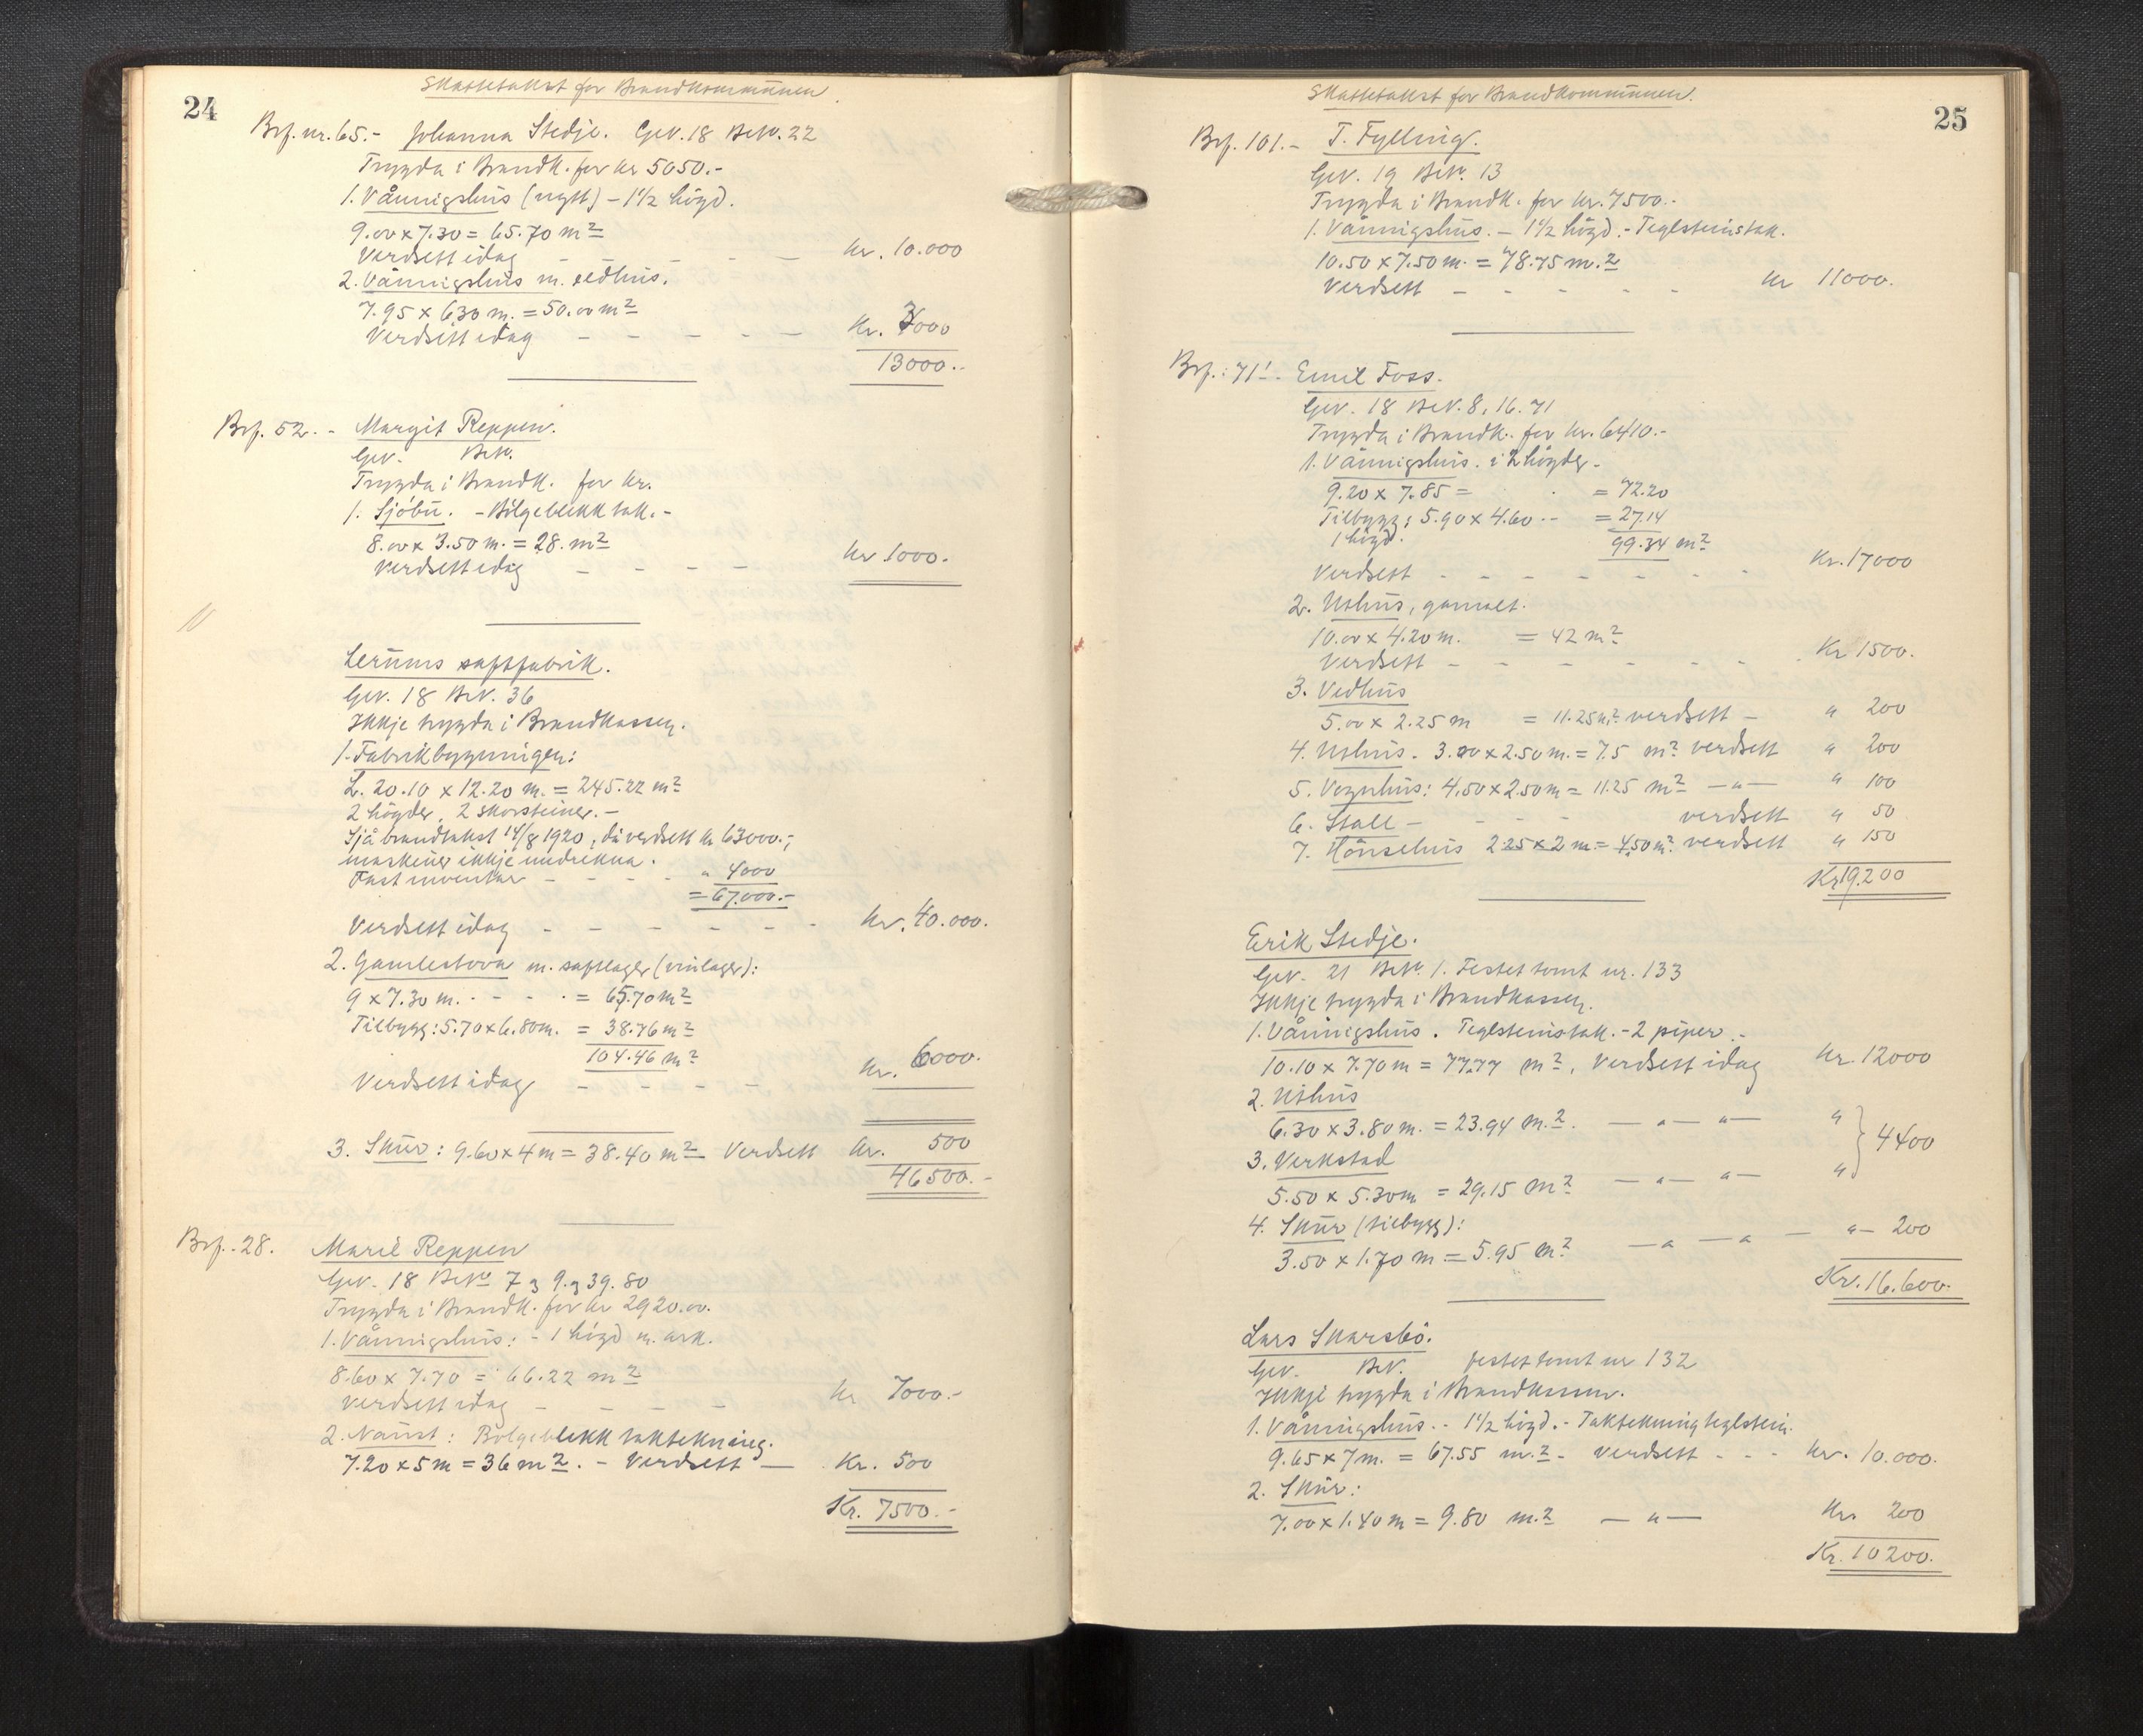 24
Skattetakst for Brandkommunen.
Brf. nr. 65.- Johanna Stedje. Gev. 18 Brv. 22
Trygda i Brandk. for kr 5050.-
1. Våningshus (nytt) - 1½ høgd.
9.00 x 7.30 = 65.70 m²
Verdsett idag - - - - kr. 10.000
2. Våningshus m. vedhus.
7.95 x 6.30 m. = 50.00 m²
Verdsett idag - - - - Kr. 3000
13000.-
Brf. 52.- Margit Reppen.
Gev. Brv.
Trygda i Brandk. for kr.
1. Sjöbu. - Bölgeblekk tak.-
8.00 x 3.50 m. = 28. m²
Verdsett idag - - - - kr 1000.-
Lerums saftfabrik.
Gev. 18 Brv. 36
Ikkje trygda i Brandkassen.
1. Fabrikbygningen:
L. 20.10 x 12.20 m. = 245.22 m²
2 høgder, 2 skorsteiner.-
Sjå brandtakst 14/8 1920, då verdsett kr 63000.-;
maskiner ikkje medrekna.
Fast inventar - - - - " 4000
= 67.000.-
Verdsett idag - - - - - - kr. 40.000.
2. Gamlestova m. saftlager (vinlager):
9 x 7.30 m. - - - = 65.70 m²
Tilbygg: 5.70 x 6.80 m. = 38.76 m²
104.46 m²
Verdsett idag - - - - kr. 6000.-
3. Skur: 9.60 x 4 m = 38.40 m² Verdsett kr. 500
46500.-
Brf. 28. Marie Reppen
Gev. 18 Brv. 7 og 9. og 39. 80
Trygda i Brandk. for kr 2920.00.
1. Våningshus: - 1 høgd m. ark.
8.60 x 7.70 = 66.22 m²
Verdsett idag - - - - kr 7000.-
2. Naust: Bølgeblekk taktekning.
7.20 x 5 m = 36 m². - Verdsett — Kr. 500
Kr. 7500.-
25
Skattetakst for Brandkommunen.
Brf. 101.- T. Fylling.
Gev. 19 Brv. 13
Trygda i Brandk. for kr. 7500.-
1. Våningshus. - 1½ høgd. - Teglsteinstak.
10.50 x 7.50 m. = 78.75 m.²
Verdsett - - - - - kr 11000.
Brf.: 71.- Emil Foss.
Gev. 18 Brv. 8, 16. 71
Trygda i Brandk. for kr. 6410.-
1. Våningshus. i 2 høgder -
9.20 x 7.85 = = 72.20
Tilbygg: 5.90 x 4.60 - = 27.14
1 høgd. 99.34 m²
Verdsett - - - - - - Kr. 17000
2. Uthus, gamalt.
10.00 x 4.20 m. = 42 m²
Verdsett - - - - - - Kr 1500.
3. Vedhus
5.00 x 2.25 m = 11.25 m² verdsett - " 200
4. Uthus. 3.00 x 2.50 m. = 7.5 m² verdsett " 200
5. Vognhus: 4.50 x 2.50 m = 11.25 m² — " — " 100
6. Stall - - - - verdsett " 50
7. Hönsehus 2.25 x 2 m. = 4.50 m² verdsett " 150
Kr 19.200
Erik Stedje.
Gev. 21 Brv. 1. Festet tomt nr. 133
Ikkje trygda i Brandkassen.
1. Våningshus. Teglsteinstak. - 2 piper.-
10.10 x 7.70 m = 77.77 m², Verdsett idag kr. 12000
2. Uthus
6.30 x 3.80 m. = 23.94 m.² — " — " — "
3. Verkstad } 4400
5.50 x 5.30 m = 29.15 m² — " — " — "
4. Skur (tilbygg):
3.50 x 1.70 m = 5.95 m² — " — " — " — 200
Kr. 16.600.-
Lars Skarsbö.
Gev. Brv. festet tomt nr 132
Ikkje trygda i Brandkassen.
1. Våningshus.- 1½ høgd. - Taktekning teglstein.
9.65 x 7 m. = 67.55 m.² - verdsett - - kr. 10.000.
2. Skur:
7.00 x 1.40 m = 9.80 m.² — " — Kr. 200
Kr. 10200.-